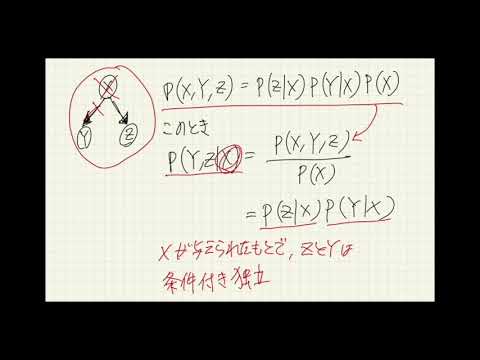 X
Y Z
P(X,Y,Z) = P(Z|X) P(Y|X) P(X)
このとき
P(Y,Z|X) = P(X,Y,Z) / P(X)
= P(Z|X) P(Y|X)
Xが与えられたもとで, ZとYは
条件付き独立